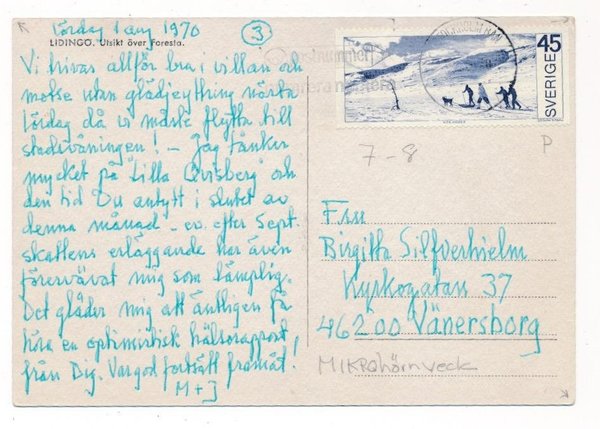 Lördag 1 aug 1970
3
LIDINGÖ. Utsikt över Foresta.
Vi trivas alltför bra i villan och
motse utan glädjeyttring nästa
lördag då vi måste flytta till
stadsvåningen! - Jag tänker
mycket på "Lilla
den tid Du antytt i slutet av
denna månad - ev. efter Sept.
skattens erläggande har även
förervävat mig som lämplig.
Det gläder mig att äntligen få
höra en optimistisk hälsorapport
från Dig. Vargöd fortsätt framåt!
M + J
SVERIGE 45
7-8
P
Fru
Birgitta Silfverhielm
Kyrkogatan 37
46200 Vänersborg
MIKROhörnveck